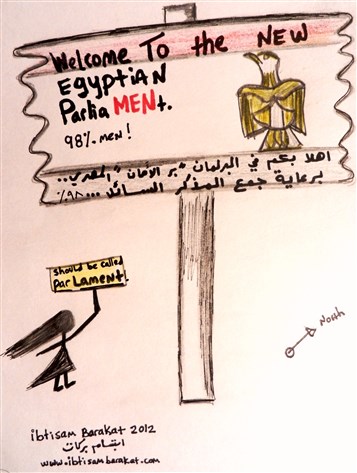 Welcome To the NEW
EgyptiAN
ParliaMENt.
98% MEN!
اهلا بكم في البرلمان "بر الأمان" المصري..
برعاية جمع المذكر السائد... ٩٨٪
should be called
ParLAMENT.
North
ibtisam Barakat 2012
ابتسام بركات
www.ibtisambarakat.com